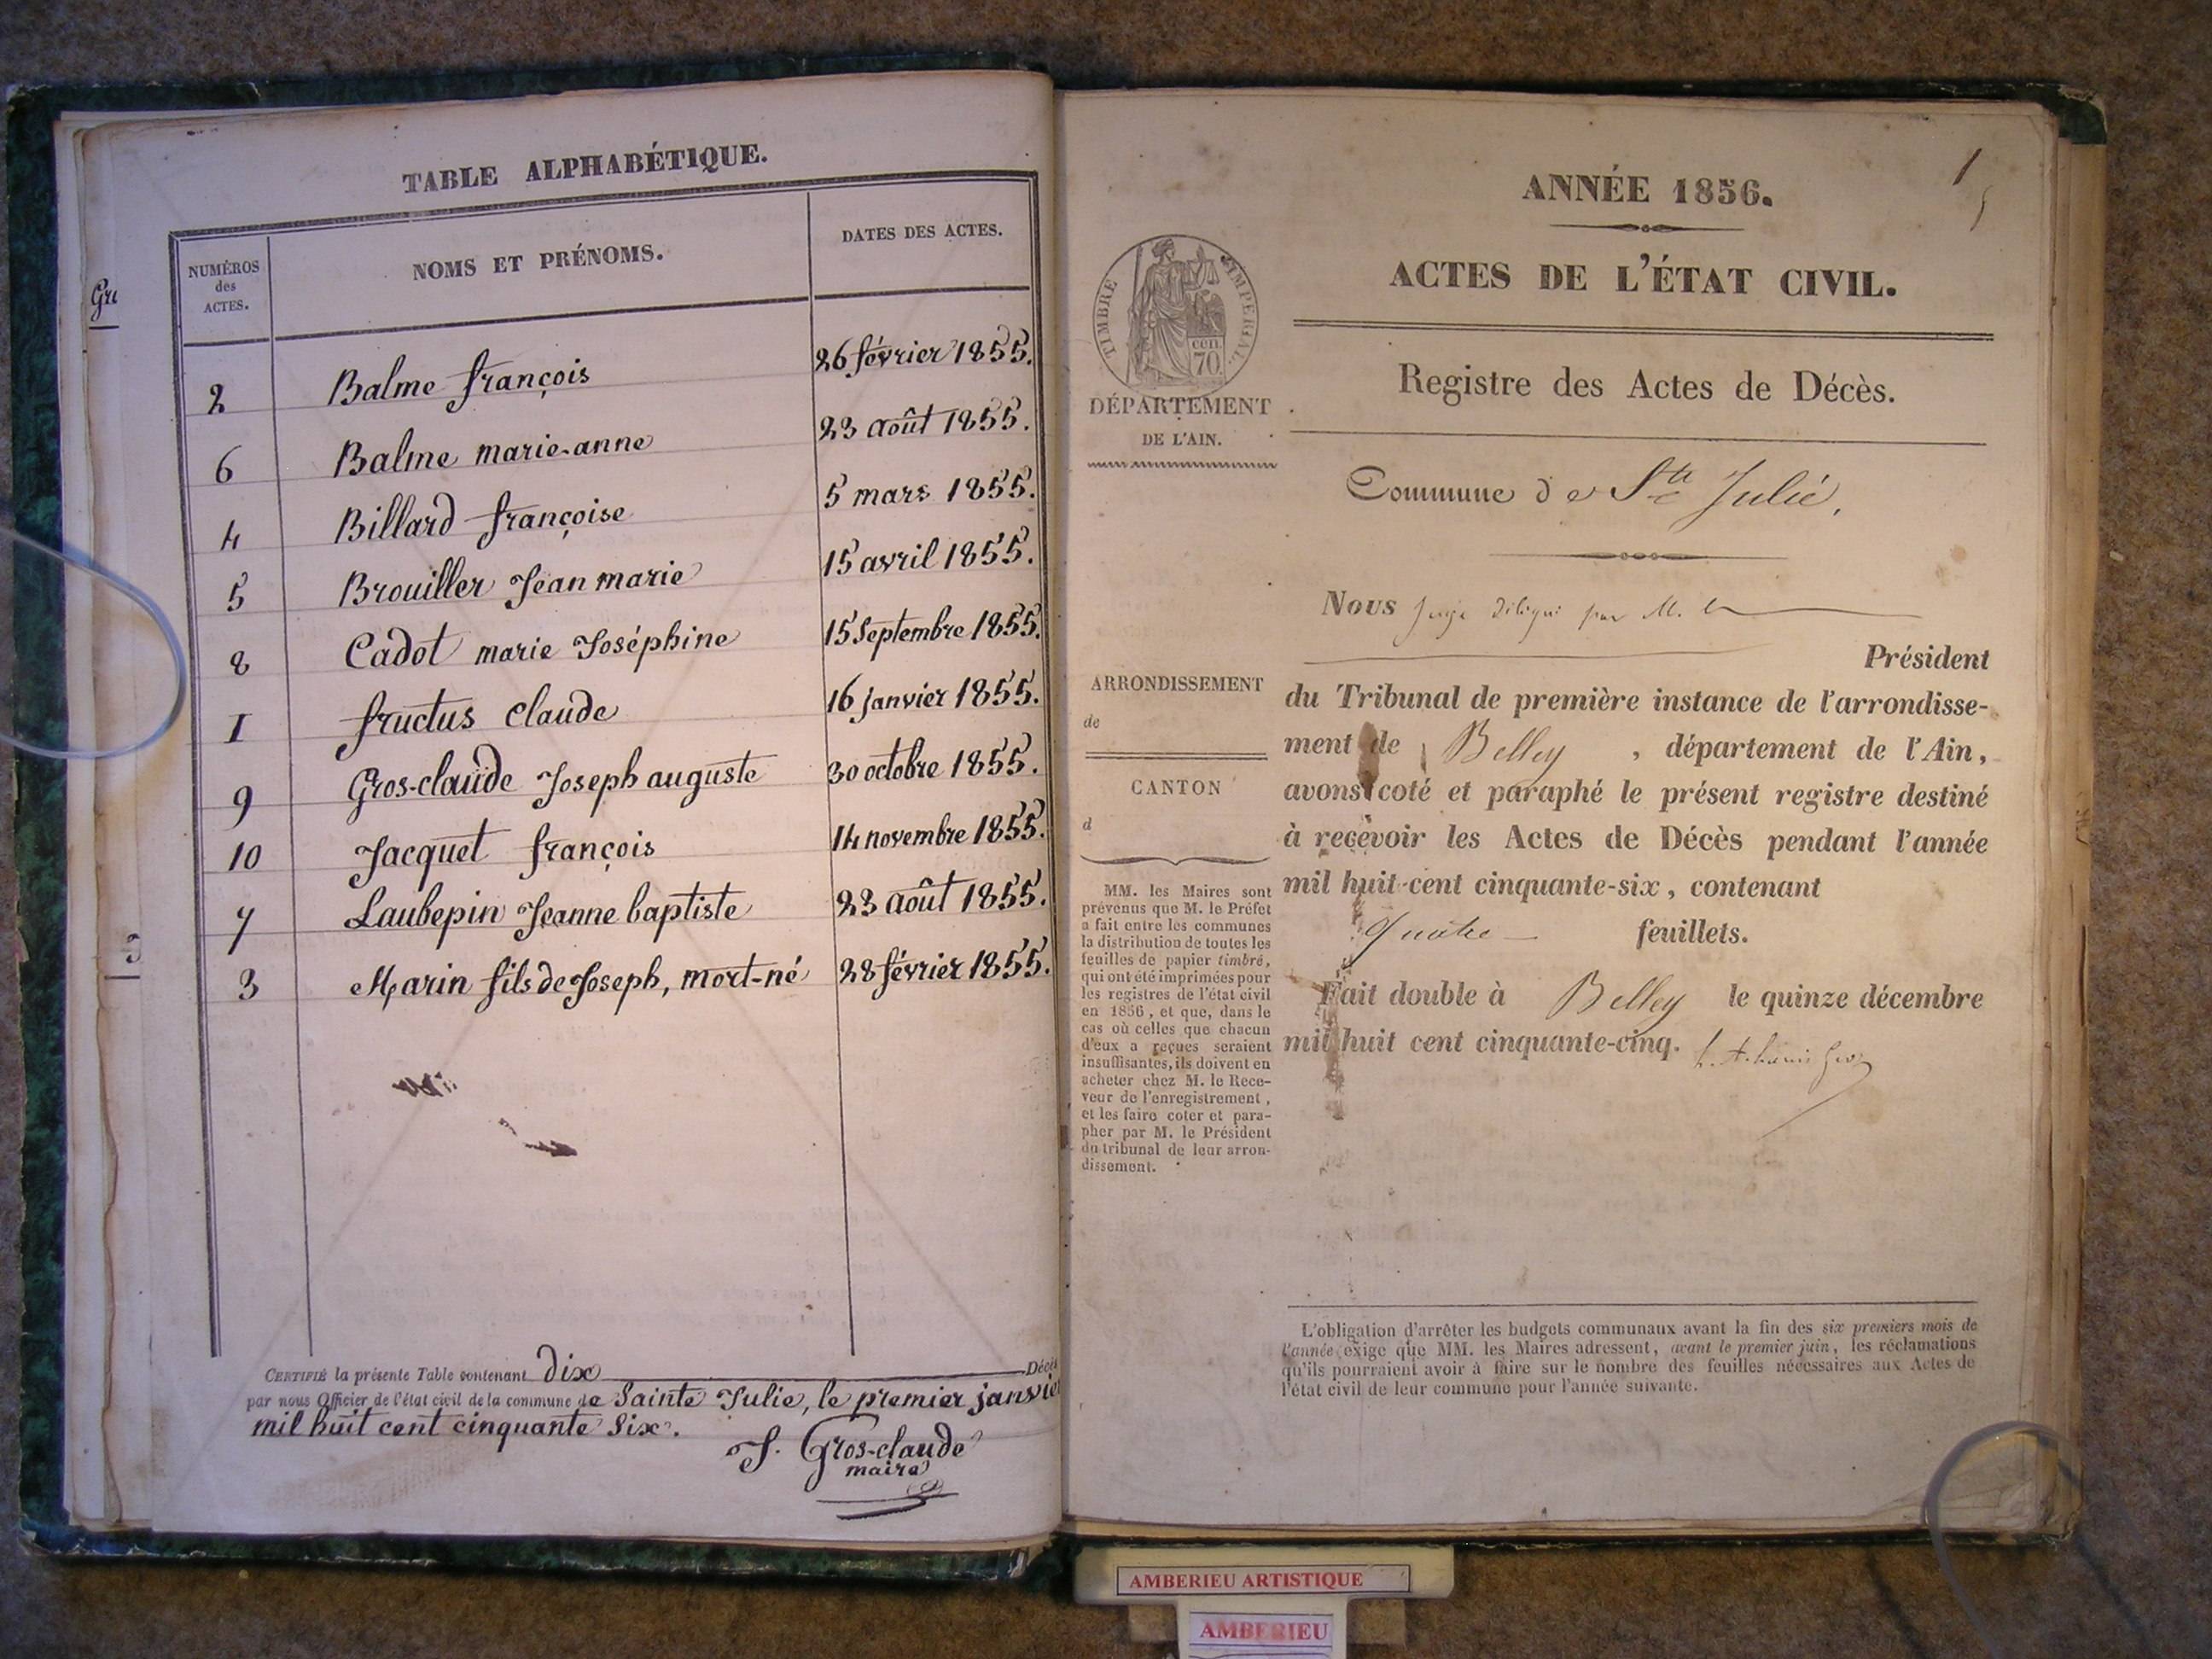 TABLE ALPHABÉTIQUE.
NUMÉROS
des
ACTES.
NOMS ET PRÉNOMS.
DATES DES ACTES.
2 Balme françois 26 février 1855.
6 Balme marie-anne 23 août 1855.
4 Billard françoise 5 mars 1855.
5 Brouiller Jean marie 15 avril 1855.
8 Cadot marie Joséphine 15 Septembre 1855.
1 fructus Claude 16 janvier 1855.
9 Gros-claude Joseph auguste 30 octobre 1855.
10 Jacquet françois 14 novembre 1855.
7 Laubepin Jeanne baptiste 23 août 1855.
3 Marin fils de Joseph, mort-né 28 février 1855.
CERTIFIÉ la présente Table contenant dix Décès
par nous Officier de l'état civil de la commune de Sainte Julie, le premier janvier
mil huit cent cinquante Six.
J. Gros-claude
maire
1
ANNÉE 1856.
ACTES DE L'ÉTAT CIVIL.
Registre des Actes de Décès.
Commune de Ste Julie.
TIMBRE IMPÉRIAL
cen.
70
DÉPARTEMENT
DE L'AIN.
ARRONDISSEMENT
de
CANTON
d
MM. les Maires sont
prévenus que M. le Préfet
a fait entre les communes
la distribution de toutes les
feuilles de papier timbré,
qui ont été imprimées pour
les registres de l'état civil
en 1856, et que, dans le
cas où celles que chacun
d'eux a reçues seraient
insuffisantes, ils doivent en
acheter chez M. le Rece-
veur de l'enregistrement,
et les faire coter et para-
pher par M. le Président
du tribunal de leur arron-
dissement.
Nous Juge délégué par M. le
Président
du Tribunal de première instance de l'arrondisse-
ment de Belley, département de l'Ain,
avons coté et paraphé le présent registre destiné
à recevoir les Actes de Décès pendant l'année
mil huit cent cinquante-six, contenant
Quatre feuillets.
Fait double à Belley le quinze décembre
mil huit cent cinquante-cinq.
L'obligation d'arrêter les budgets communaux avant la fin des six premiers mois de
l'année exige que MM. les Maires adressent, avant le premier juin, les réclamations
qu'ils pourraient avoir à faire sur le nombre des feuilles nécessaires aux Actes de
l'état civil de leur commune pour l'année suivante.
AMBERIEU ARTISTIQUE
AMBERIEU